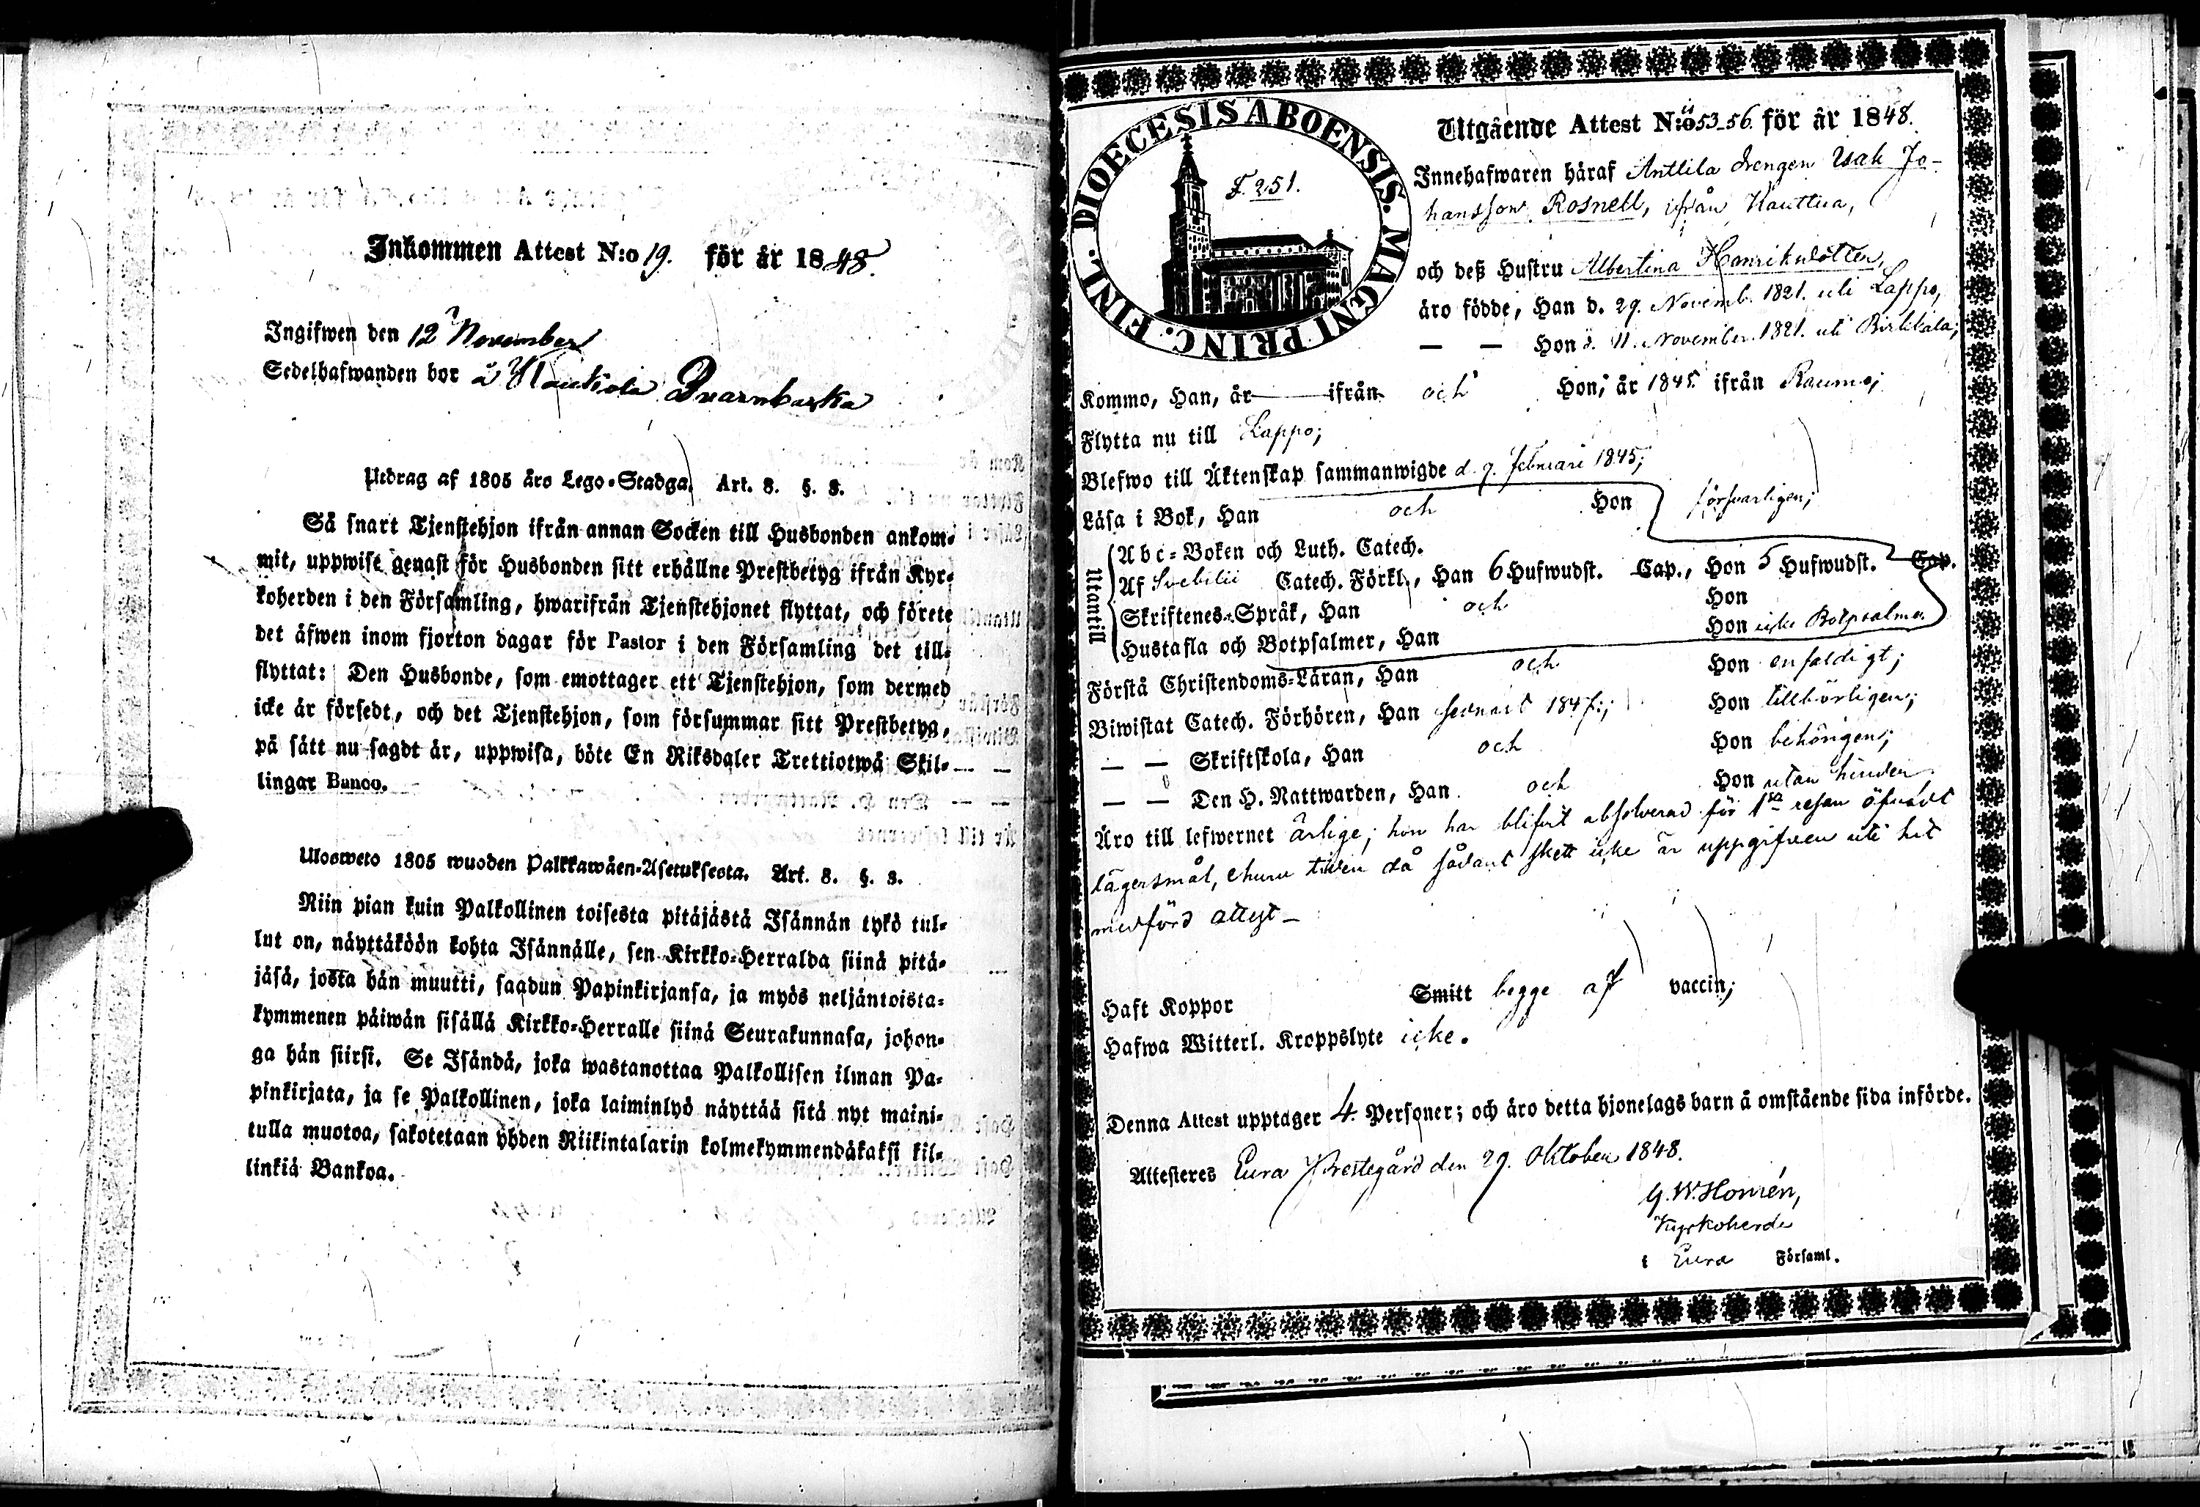 Inkommen Attest N:o 19. för år 1848.
Ingifwen den 12 November
Sedelhafwanden bor å
Utdrag af 1805 års Lego-Stadga. Art. 8. §. 3.
Så snart Tjenstehjon ifrån annan Socken till Husbonden ankom-
mit, uppwise genast för Husbonden sitt erhållne Prestbetyg ifrån Kyr-
koherden i den Församling, hwarifrån Tjenstehjonet flyttat, och förete
det äfwen inom fjorton dagar för Pastor i den Församling det till-
flyttat: Den Husbonde, som emottager ett Tjenstehjon, som dermed
icke är försedt, och det Tjenstehjon, som försummar sitt Prestbetyg,
på sätt nu sagdt är, uppwisa, böte En Riksdaler Trettiotwå Skil-
lingar Banco.
Ulosweto 1805 wuoden Palkkawäen-Asetuksesta. Art. 8. §. 3.
Niin pian kuin Palkollinen toisesta pitäjästä Isännän tykö tul-
lut on, näyttäköön kohta Isännälle, sen Kirkko-Herralda siinä pitä-
jäsä, josta hän muutti, saadun Papinkirjansa, ja myös neljäntoista-
kymmenen päiwän sisällä Kirkko-Herralle siinä Seurakunnasa, johon-
ga hän siirsi. Se Isändä, joka wastanottaa Palkollisen ilman Pa-
pinkirjata, ja se Palkollinen, joka laiminlyö näyttää sitä nyt maini-
tulla muotoa, sakotetaan yhden Riikintalarin kolmekymmendäkaksi kil-
linkiä Bankoa.
DIOECESIS ABOENSIS. MAGNI PRINC. FINL.
F. 251.
Utgående Attest N:is 53-56. för år 1848.
Innehafwaren häraf Anttila drengen Isak Jo-
hansson Rosnell, ifrån Kauttua,
och deß Hustru Albertina Henriksdotter,
äro födde, Han d. 29. Novemb. 1821. uti Lappo,
— — Hon d. 11. November 1821. uti Birkkala;
Kommo, Han, år — ifrån och Hon, år 1845 ifrån Raumo;
Flytta nu till Lappo;
Blefwo till Äktenskap sammanwigde d. 9. Februari 1845;
Läsa i Bok, Han och Hon försvarligen;
Utantill
Abc-Boken och Luth. Catech.
Af Svebilii Catech. Förkl., Han 6 Hufwudst. Cap., Hon 5 Hufwudst. Cap.
Skriftenes-Språk, Han och Hon
Hustafla och Botpsalmer, Han Hon icke Botpsalmer.
Förstå Christendoms-Läran, Han och Hon enfaldigt;
Biwistat Catech. Förhören, Han sednast 1847; Hon tillbörligen;
— — Skriftskola, Han och Hon behörigen;
— — Den H. Nattwarden, Han och Hon utan hinder.
Äro till lefwernet ärlige; hon har blifvit absolverad för 1sta resan öfvadt
lägersmål, ehuru tiden då sådant skett icke är uppgifven uti hit
medförd attest —
Haft Koppor Smitt begge af vaccin;
Hafwa Witterl. Kroppslyte icke.
Denna Attest upptager 4 Personer; och äro detta hjonelags barn å omstående sida införde.
Attesteres Eura Prestegård den 29. Oktober 1848.
G. W. Homén,
Kyrkoherde
i Eura Församl.